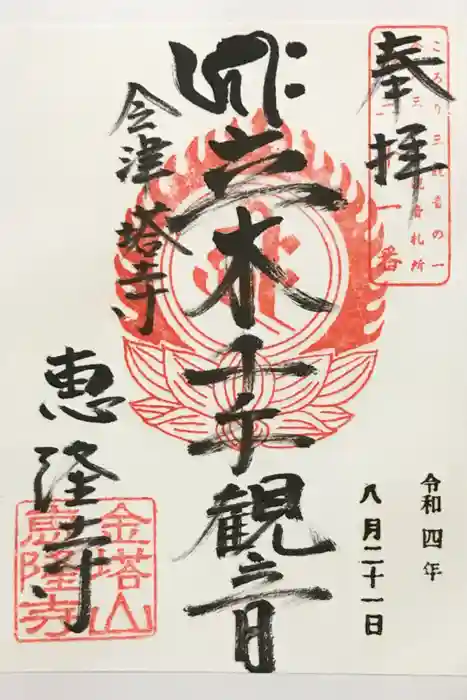 奉拝
ころり三観音の一
会津三十三観音札所
三十一番
令和四年
八月二十一日
立木千手観音
会津
塔寺
恵隆寺
金塔山
恵隆寺